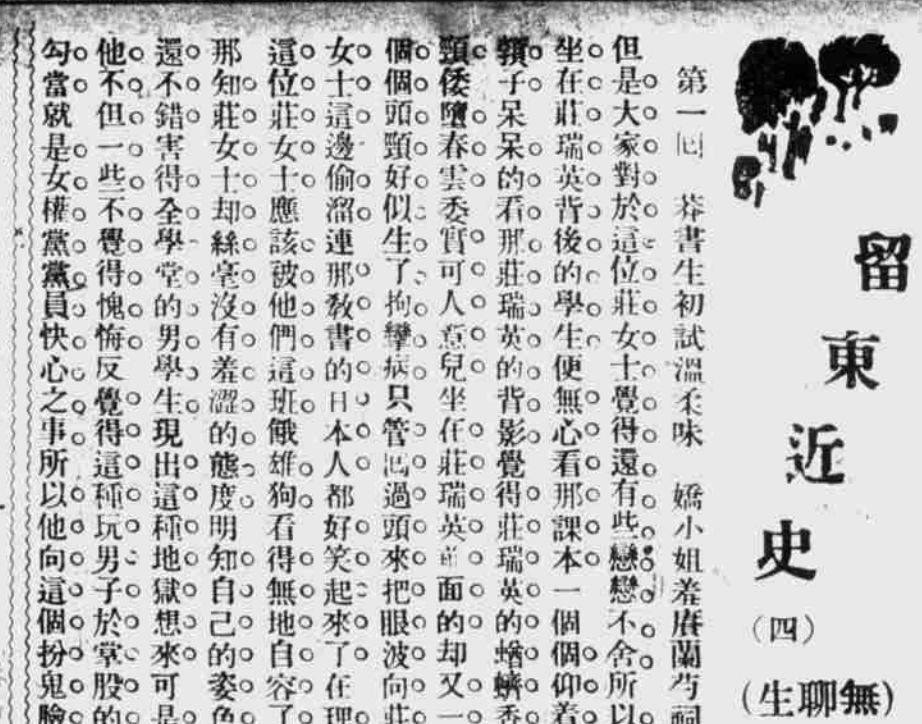 留東近史
(四)
(無聊生)
第一回 莽書生初試溫柔味 嬌小姐羞賡蘭芍詞
但是大家對於這位莊女士覺得還有些戀戀不舍所以
坐在莊瑞英背後的學生便無心看那課本一個個仰着
子呆呆的看那莊瑞英的背影覺得莊瑞英的蝤蠐香
頸倭墮春雲委實可人意兒坐在莊瑞英前面的却又一
個個頭頸好似生了拘攣病只管回過頭來把眼波向莊
女士這邊偷溜連那教書的日本人都好笑起來了在理
這位莊女士應該被他們這班餓雄狗看得無地自容了
那知莊女士却絲毫沒有羞澀的態度明知自己的姿色
還不錯害得全學堂的男學生現出這種地獄想來可是
他不但一些不覺得愧悔反覺得這種玩男子於掌股的
勾當就是女權黨黨員快心之事所以他向這個扮鬼臉